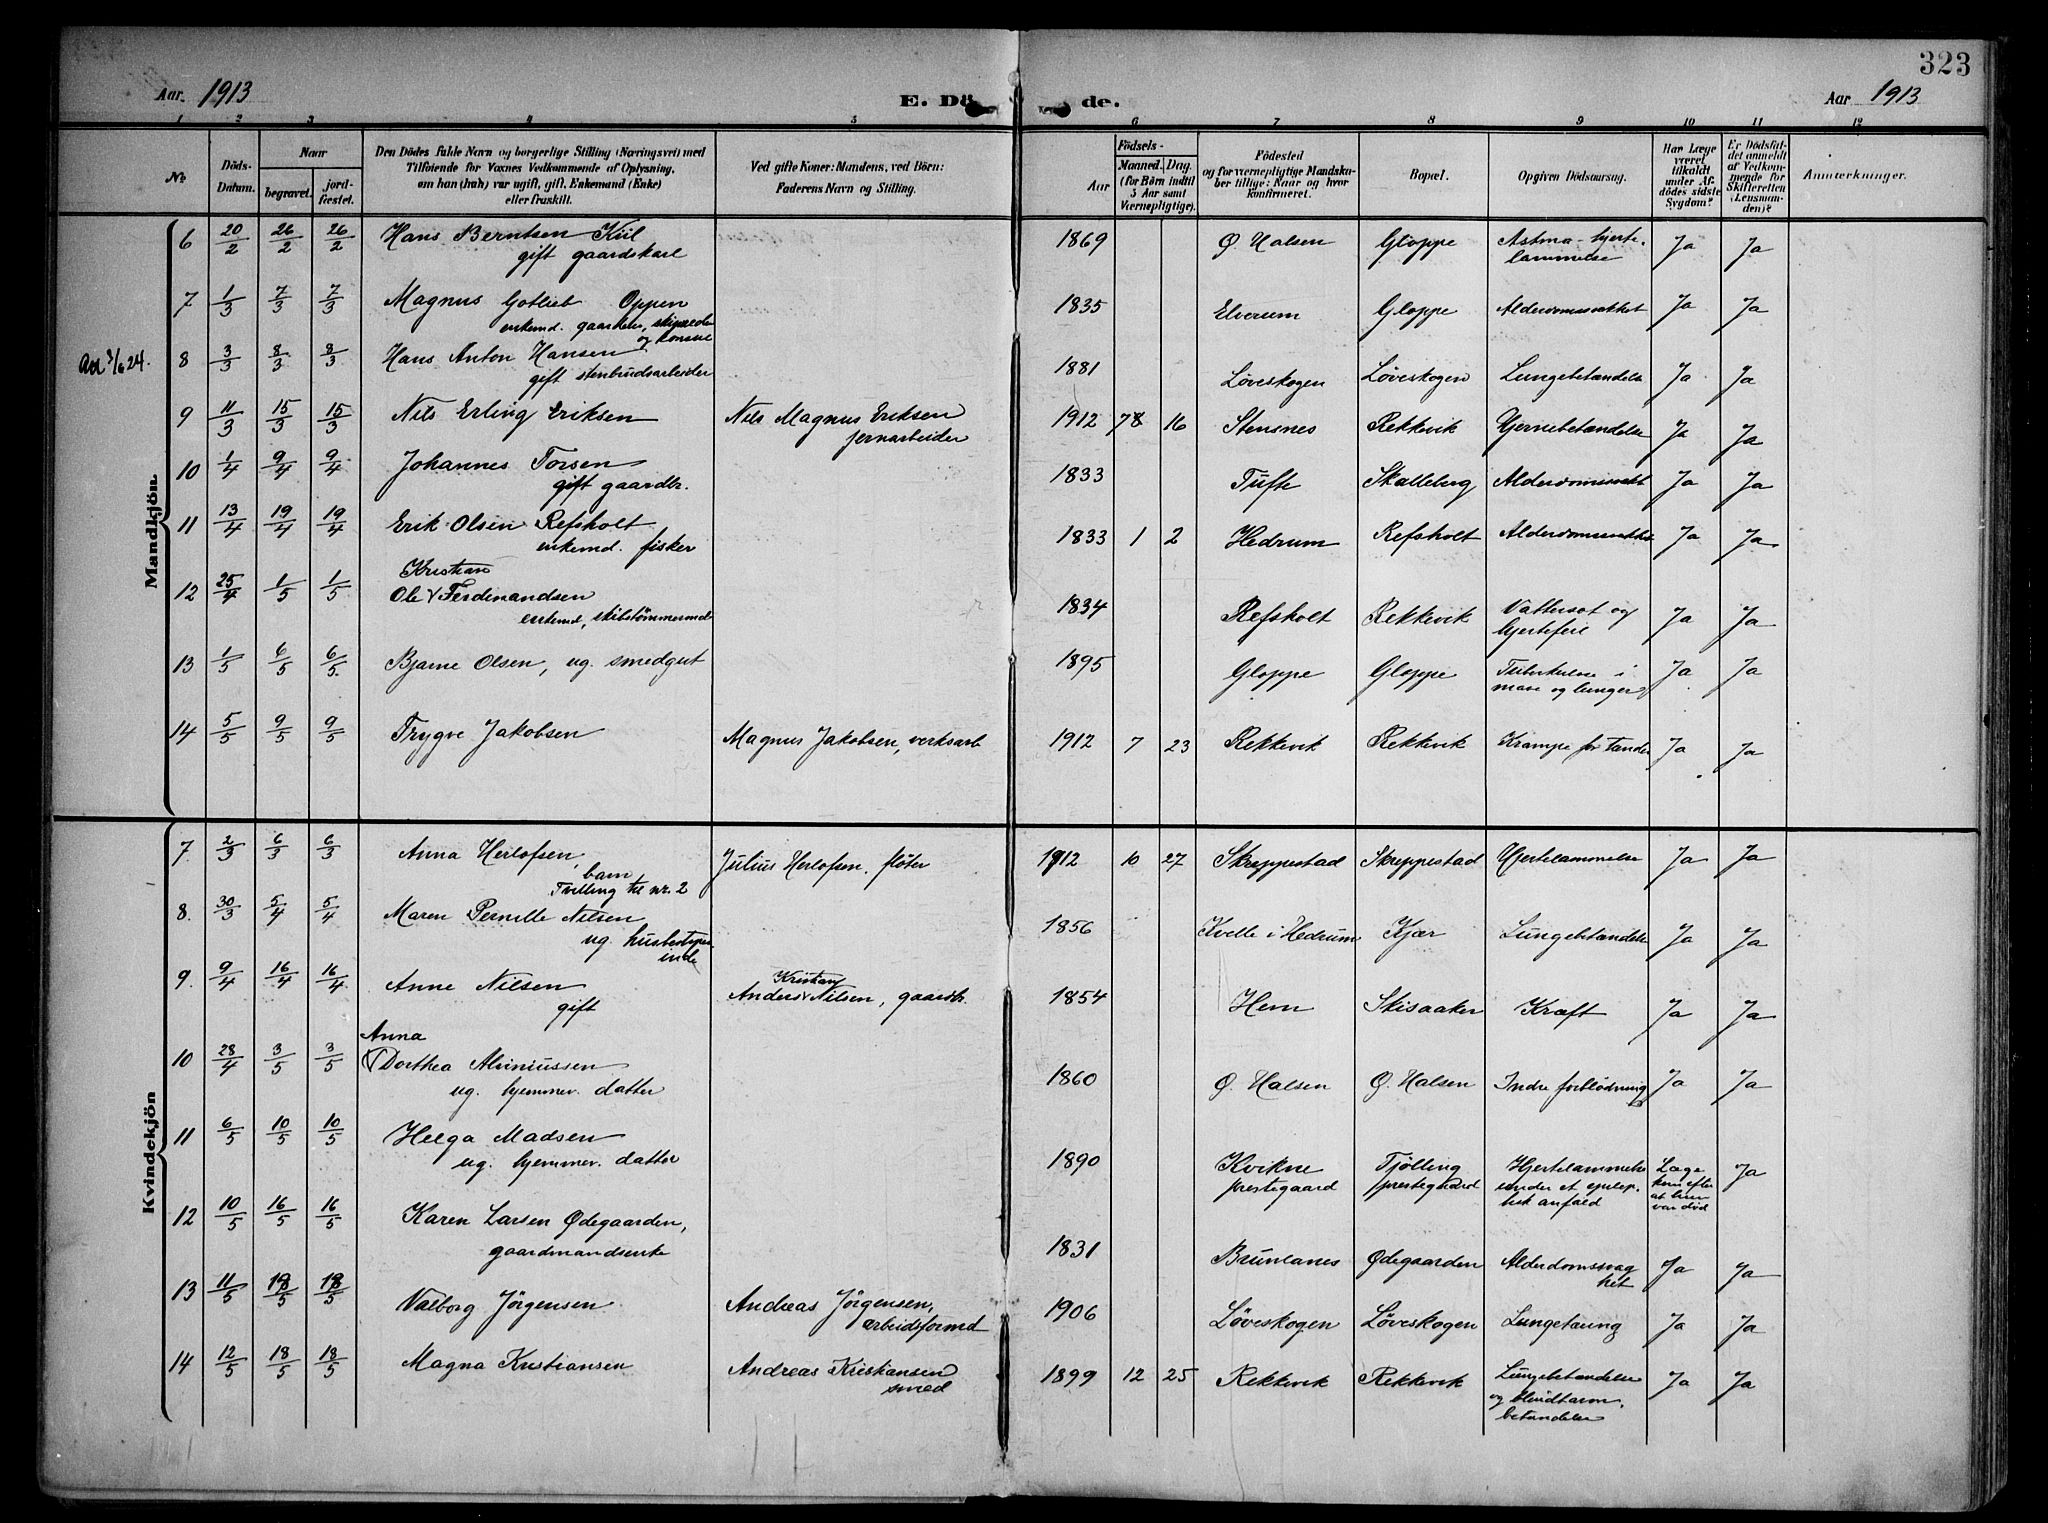 323
Aar 1913
E. Dö de.
Aar 1913
1 2 3 4 5 6 7 8 9 10 11 12
No
Döds-Datum.
Naar
begravet.
jord-fæstet.
Den Dödes fulde Navn og borgerlige Stilling (Næringsvei) med
Tilföiende for Voxnes Vedkommende af Oplysning,
om han (hun) var ugift, gift, Enkemand (Enke)
eller fraskilt.
Ved gifte Koner: Mandens, ved Börn:
Faderens Navn og Stilling.
Födsels-
Aar
Maaned. Dag.
(for Börn indtil
5 Aar samt
Værnepligtige).
Födested
og for værnepligtige Mandska-
ber tillige: Naar og hvor
konfirmeret.
Bopæl.
Opgiven Dödsaarsag.
Har Læge
været
tilkaldt
under Af-
dödes sidste
Sygdom?
Er Dödsfal-
det anmeldt
af Vedkom-
mende for
Skifteretten
(Lensman-
den)?
Anmerkninger.
Mandkjön.
6 20/2 26/2 26/2 Hans Berntsen Kiil 1869 Ø. Halsen Gloppe Astma - hjerte- Ja Ja
gift gaardskarl lammelse
7 1/3 7/3 7/3 Magnus Gotlieb Oppen 1835 Elverum Gloppe Alderdomssvakhet Ja Ja
enkemd. gaardeier, skipsreder
og konsul
8 3/3 8/3 8/3 Hans Anton Hansen 1881 Løveskogen Løveskogen Lungebetændelse Ja Ja
gift stenbrudsarbeider
9 11/3 15/3 15/3 Nils Erling Eriksen Nils Magnus Eriksen 1912 16 Stensnes Rekkevik Hjernebetændelse Ja Ja
jernarbeider
10 1/4 9/4 9/4 Johannes Torsen 1833 Tufte Skalleberg Alderdomssvakt Ja Ja
gift gaardbr.
11 13/4 19/4 19/4 Erik Olsen Refsholt 1833 1 2 Hedrum Refsholt Ja Ja
enkemd. fisker
Kristian
12 25/4 1/5 1/5 Ole V Ferdinandsen 1834 Refsholt Rekkevik Vattersot og Ja Ja
enkemd, skibstømmermd hjertefeil
13 1/5 6/5 6/5 Bjarne Olsen, ug. smedgut 1895 Gloppe Gloppe Tuberkulose i Ja Ja
mave og lunger
14 5/5 9/5 9/5 Trygve Jakobsen Magnus Jakobsen, verksarb 1912 7 23 Rekkevik Rekkevik Krampe for tænder Ja Ja
Kvindekjön
7. 2/3 6/3 6/3 Anna Herlofsen Julius Herlofsen. fløter 1912 10 27 Skreppestad Skreppestad Hjertelammelse Ja Ja
barn,
Tvilling til nr. 2
8. 30/3 5/4 5/4 Maren Pernille Nilsen 1856 Kvelle i Hedrum Kjær Lungebetændelse Ja Ja
ug. husbestyrer
inde
Kristian
9. 9/4 16/4 16/4 Anne Nilsen Anders V Nilsen, gaardb. 1854 Hem Skisaaker Kræft Ja Ja
gift
Anna
10 28/4 3/5 3/5 V Dorthea Aliniussen 1860 Ø. Halsen Ø. Halsen Indre forblødning Ja Ja
ug. hjemmev. datter
11 6/5 10/5 10/5 Helga Madsen 1890 Kvikne Tjølling Hjertelammelse Læge Ja
ug. hjemmev. datter prestegaard prestegaard under et epilep- kom efter
tisk anfald at hun
var død
12 10/5 16/5 16/5 Karen Larsen Ødegaarden, 1831 Brunlanes Ødegaarden Alderdomssvag Ja Ja
gaardmandsenke het
13 11/5 18/5 18/5 Valborg Jørgensen Andreas Jørgensen, 1906 Løveskogen Løveskogen Lungetæring Ja Ja
arbeidsformd
14 12/5 18/5 18/5 Magna Kristiansen Andreas Kristiansen 1899 12 25 Rekkevik Rekkevik Lungebetændelse Ja Ja
smed og blindtarm.
betændelse